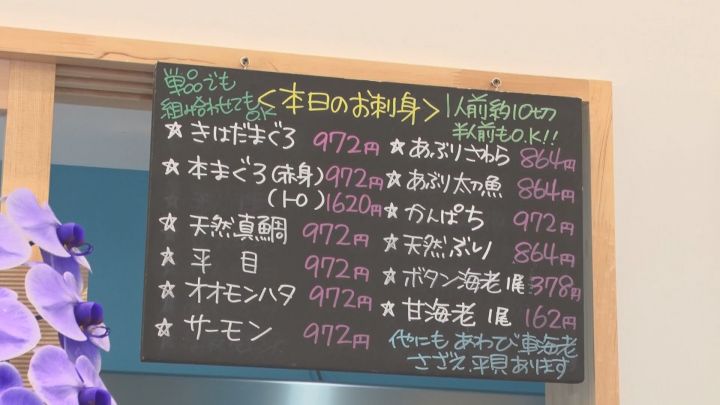 単品でも
組み合わせてもOK
<本日のお刺身>
1人前約10切
半人前もO.K!!
☆きはだまぐろ 972円
☆本まぐろ(赤身) 972円
(トロ) 1620円
☆天然真鯛 972円
☆平目 972円
☆オオモンハタ 972円
☆サーモン 972円
☆あぶりさわら 864円
☆あぶり太刀魚 864円
☆かんぱち 972円
☆天然ぶり 864円
☆ボタン海老1尾 378円
☆甘海老1尾 162円
他にもあわび、車海老
さざえ、平貝あります